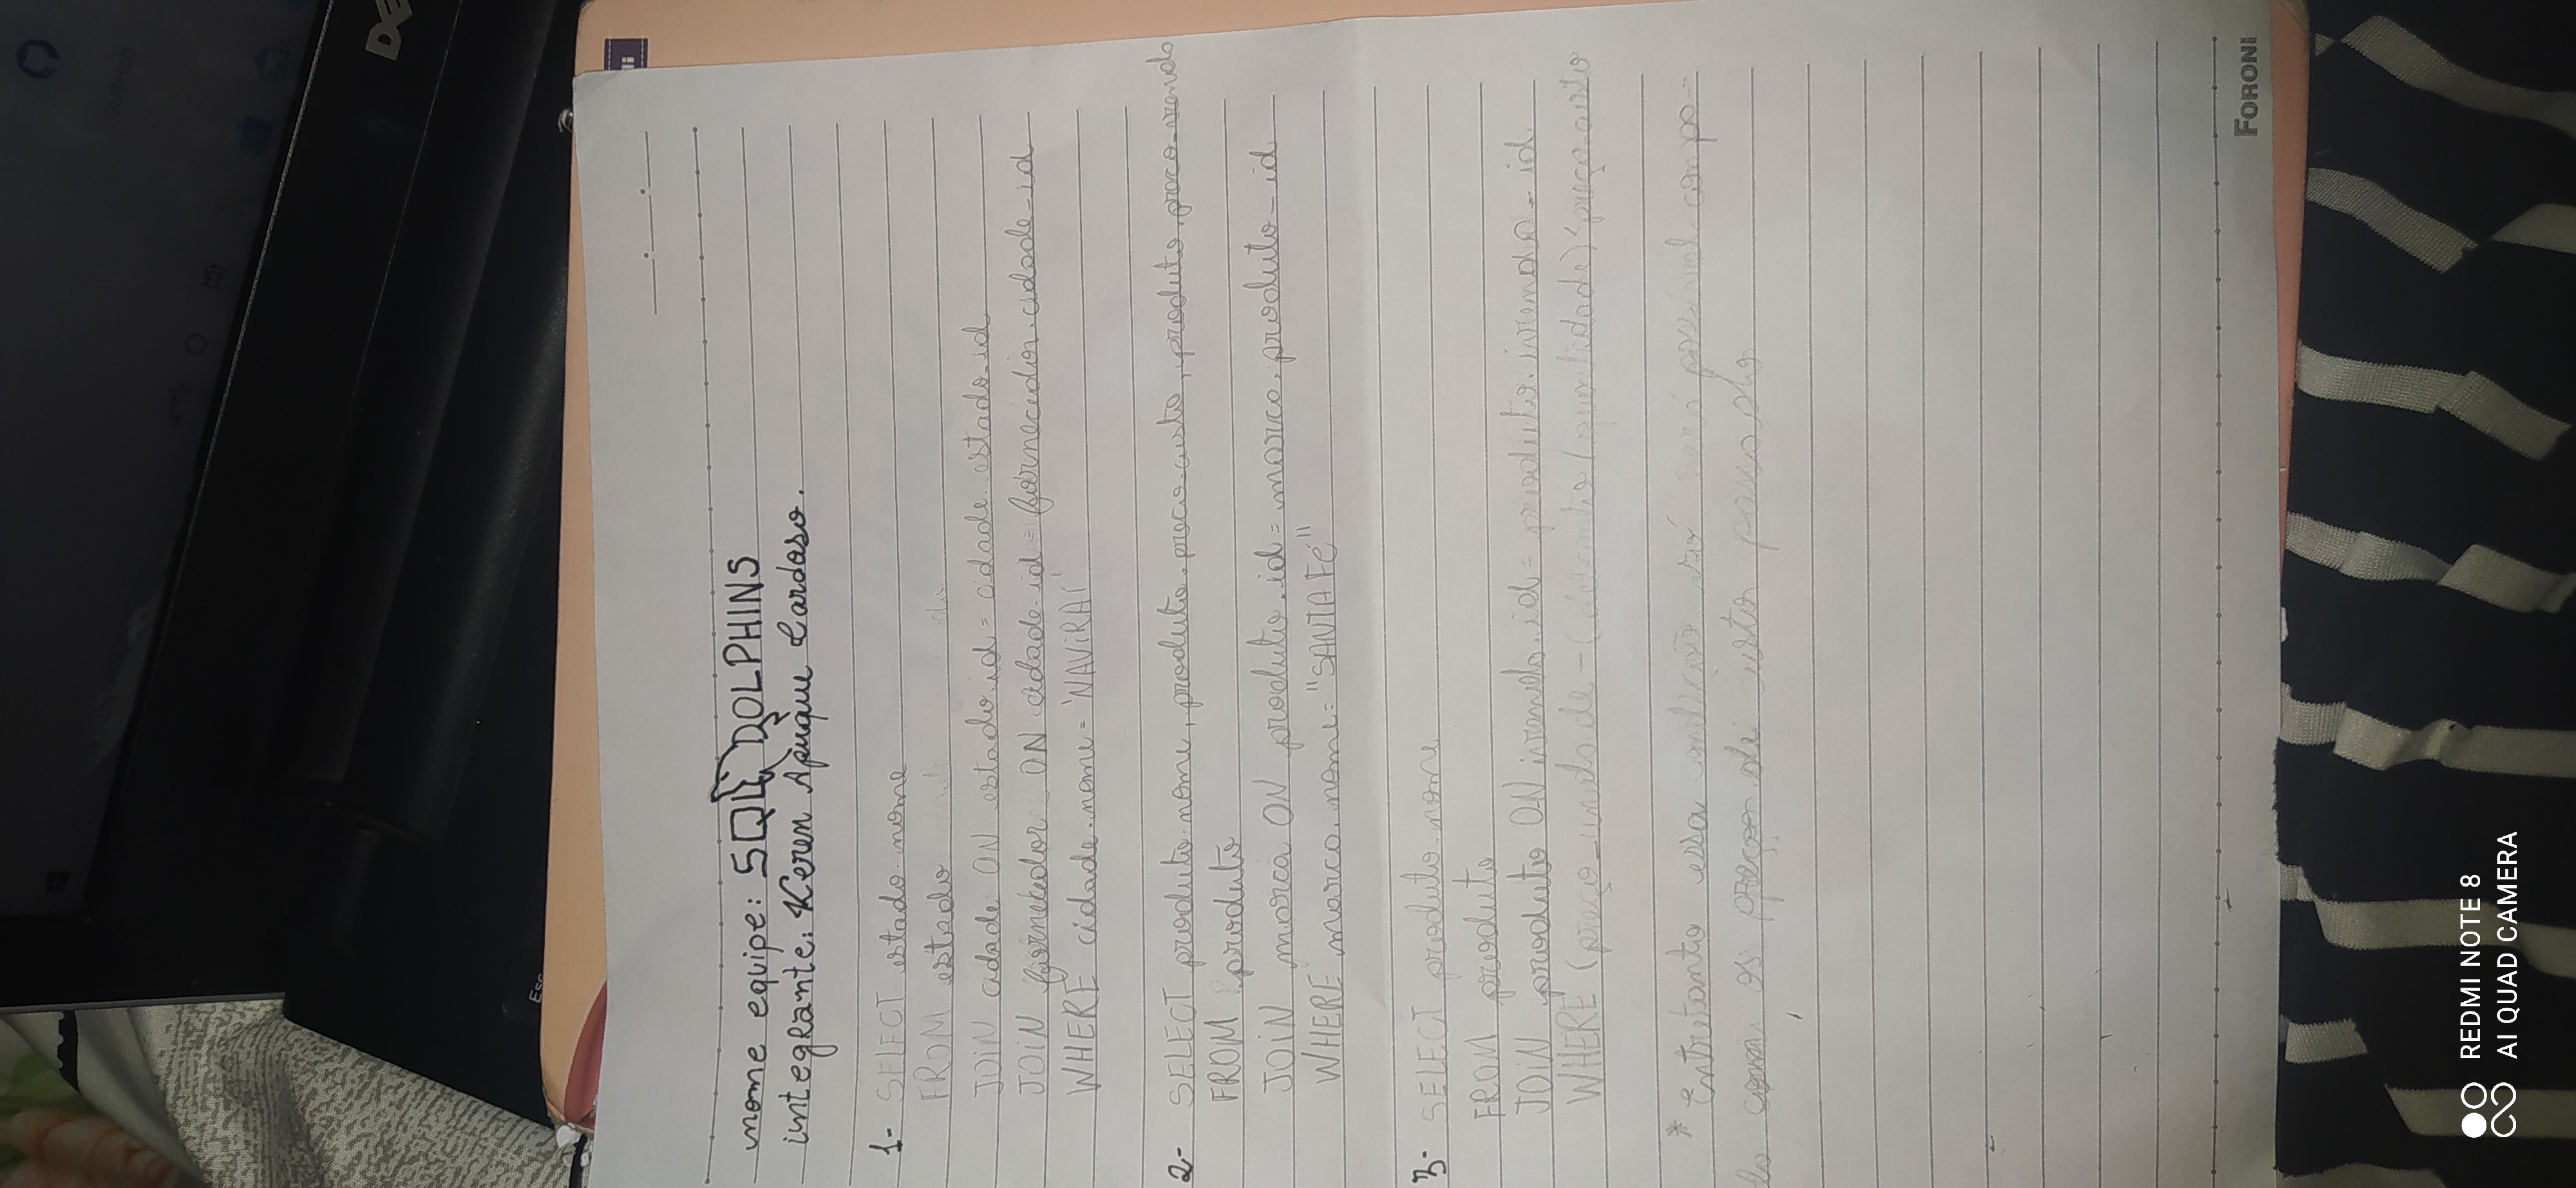 GuitHub
DE
Esc
li
nome equipe: SQL DOLPHINS
integrante: Keren Apuque Cardoso.
1- SELECT estado.nome
FROM estado
JOIN cidade ON estado.id = cidade.estado_id
JOIN fornecedor ON cidade.id = fornecedor.cidade_id
WHERE cidade.nome = 'NAVIRAÍ'
2- SELECT produto.nome, produto.preco_custo, produto.preco_venda
FROM produto
JOIN marca ON produto.id = marca.produto_id
WHERE marca.nome = "SANTA Fé"
3- SELECT produto.nome
FROM produto
JOIN produto ON .id = produto. _id
WHERE (preço_unidade - (desconto / quantidade) < preço_custo
* Entretanto essa condição só será possível
com os preços de custo
FORONI
REDMI NOTE 8
AI QUAD CAMERA